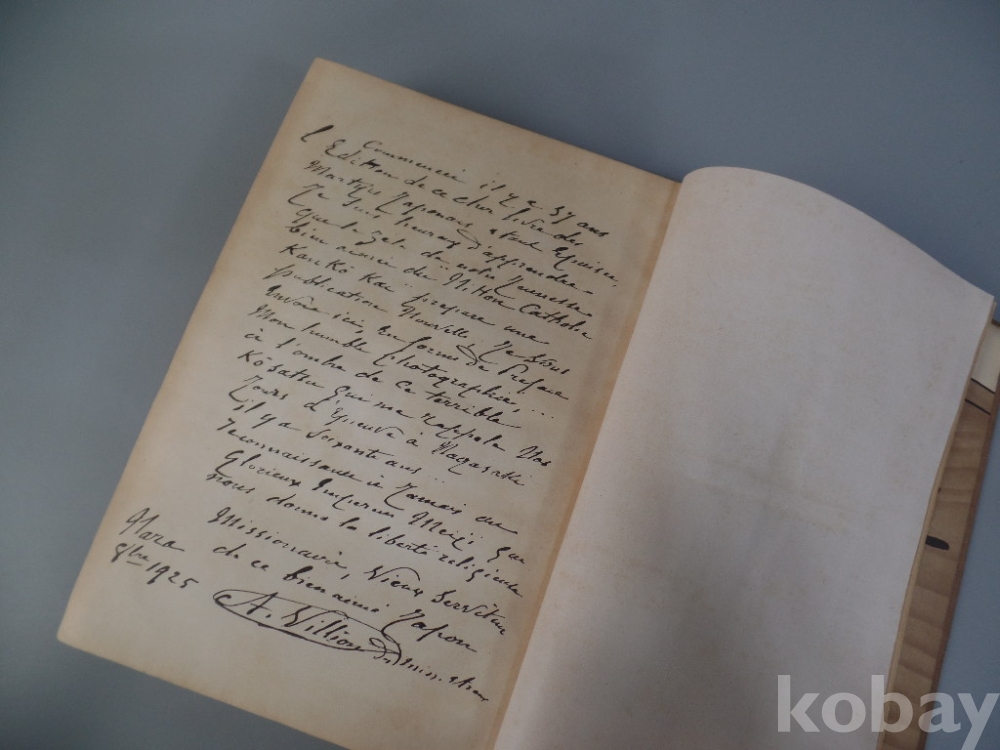 Commencée il y a 37 ans
l'Edition de ce cher livre des
Martyrs Japonais étant épuisée,
Je suis heureux d'apprendre
que le zèle de notre Jeunesse
bien aimée du Nihon Catholic
Kankô Kai prépare une
publication Nouvelle. Je vous
envoie ici, en forme de Préface
Mon humble photographie, ...
à l'ombre de ce terrible
Kôsatsu qui me rappelle Nos
Jours d'épreuve à Nagasaki
il y a soixante ans ..
reconnaissance à Jamais au
Glorieux Empereur Meiji, qui
nous donna la liberté religieuse
Missionnaire, Vieux serviteur
de ce bien aimé Japon
Nara
8bre 1925
A. Villion
miss.
kobay